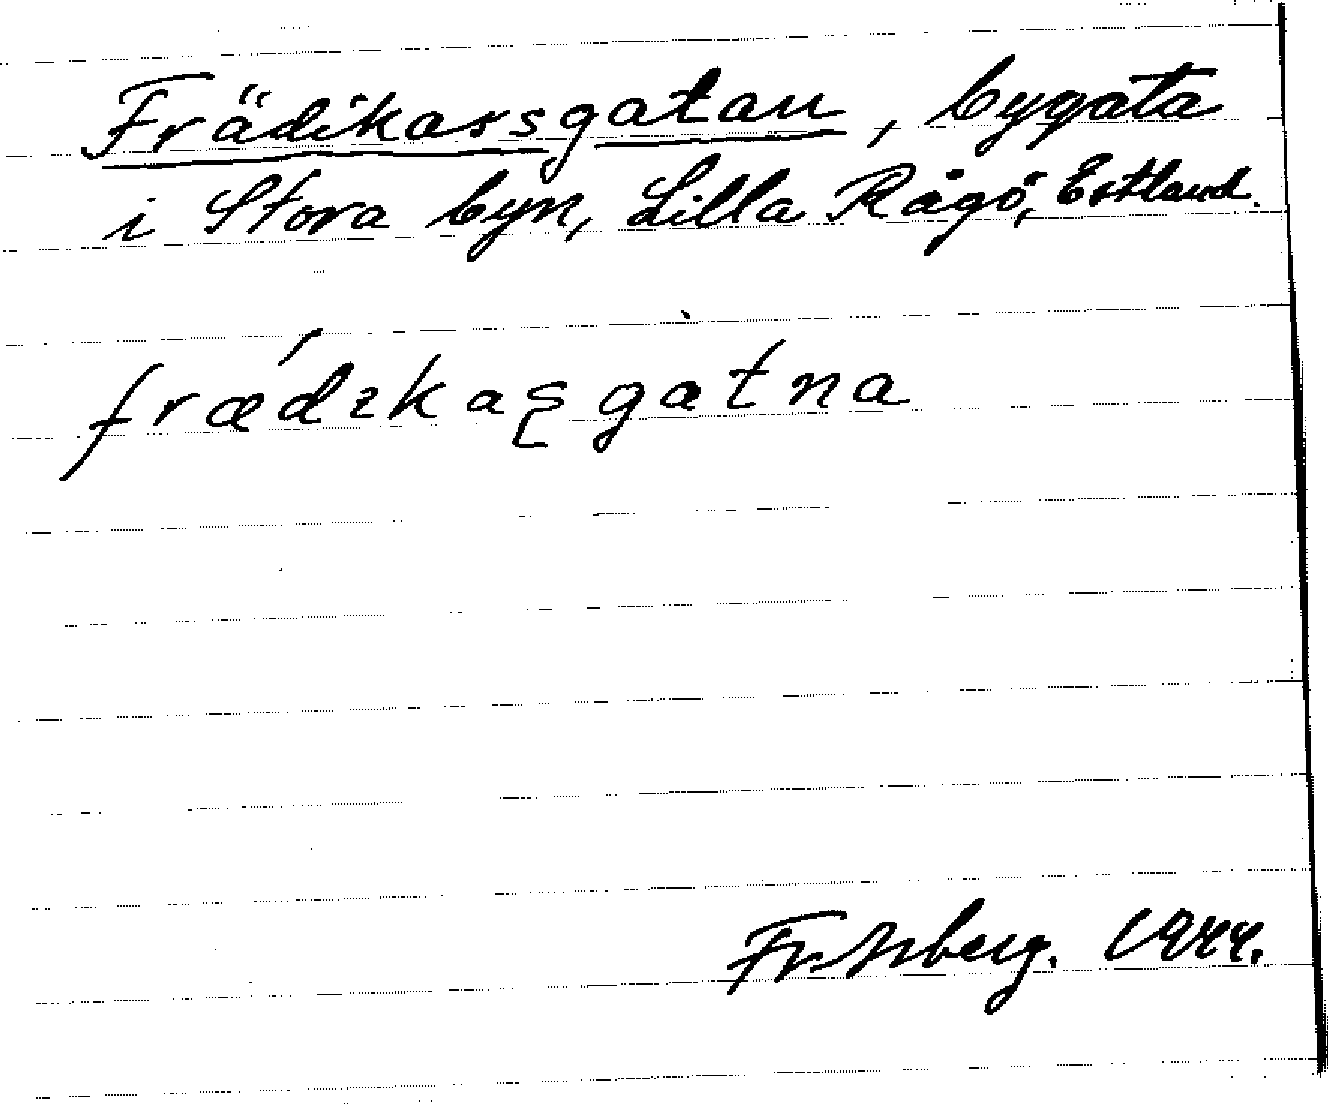 Frädikarsgatan, bygata
i Stora byn, Lilla Rågö, Estland.
frǽdıkaʂgàtna
1944.